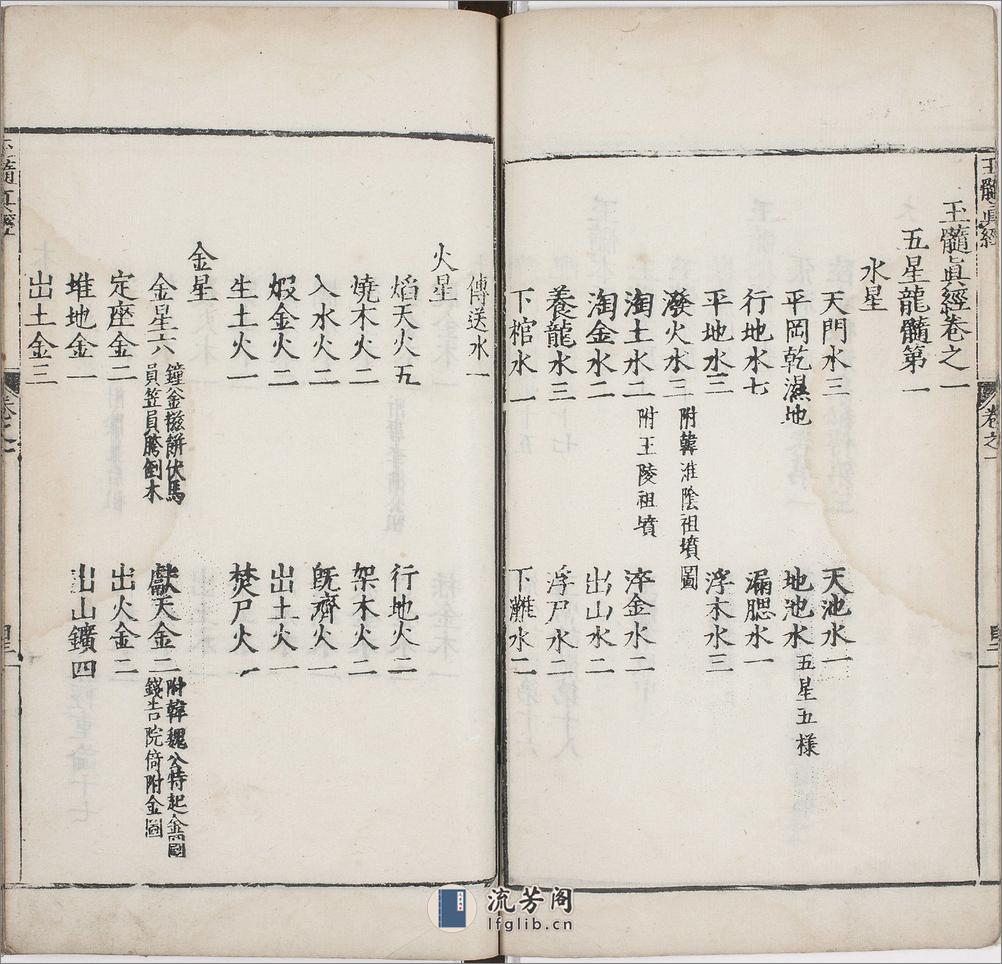 玉髓眞經卷之一
五星龍髓第一
水星
天門水三 天池水一
平岡乾濕地 地池水五星五樣
行地水七 漏腮水一
平地水三 浮木水三
潑火水三附韓淮陰祖墳圖
淘土水二附王陵祖墳 淬金水二
淘金水二 出山水二
養龍水三 浮尸水二
下棺水一 下灘水二
傳送水一
火星
焰天火五 行地火二
燒木火二 架木火二
入水火二 旣濟火一
煅金火二 出土火一
生土火一 焚尸火一
金星
金星六鐘金糍餅伏馬員笠員騰倒木 獻天金二附韓魏公特起金圖錢吿院倚附金圖
定座金二 出火金二
堆地金一 出山鑛四
出土金三
玉髓眞經
卷之一
流芳阁
lfglib.cn